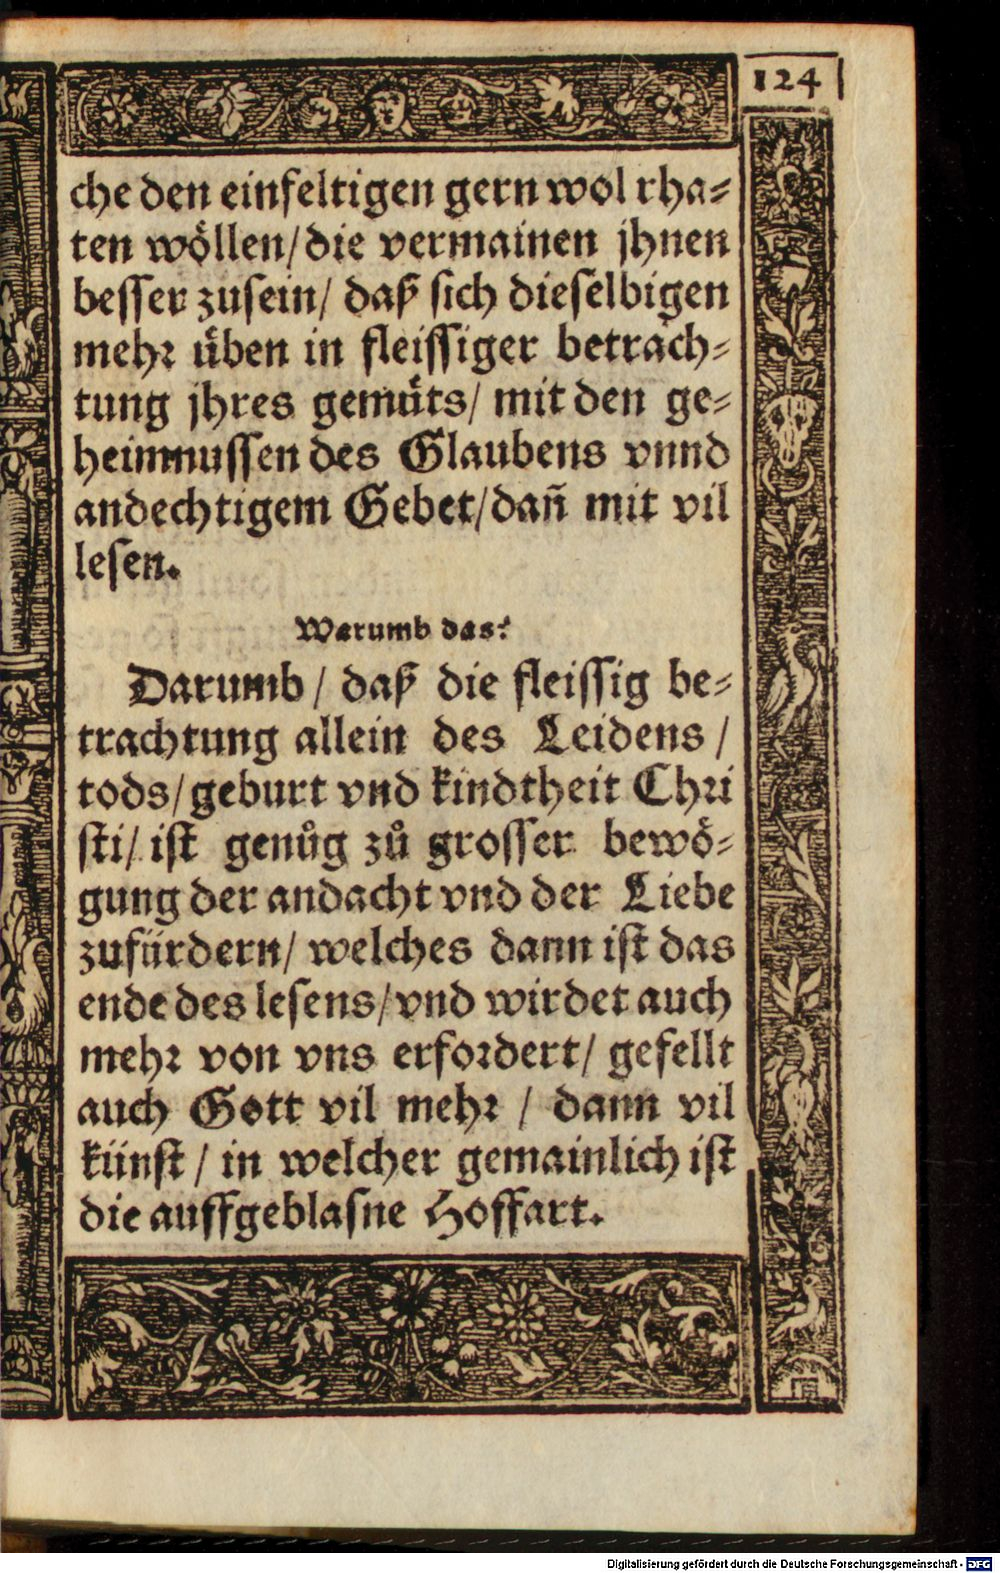 124
che den einfeltigen gern wol rha⸗
ten wöllen/die vermainen jhnen
besser zusein/ daß sich dieselbigen
mehr üben in fleissiger betrach⸗
tung jhres gemüts/ mit den ge⸗
heimnussen des Glaubens vnnd
andechtigem Gebet/dañ mit vil
lesen.
Warumb das?
Darumb / daß die fleissig be⸗
trachtung allein des Leidens /
tods/geburt vnd kindtheit Chri
sti/ ist genůg zů grosser bewö⸗
gung der andacht vnd der Liebe
zufürdern/ welches dann ist das
ende des lesens/vnd wirdet auch
mehr von vns erfordert/ gefellt
auch Gott vil mehr / dann vil
künst / in welcher gemainlich ist
die auffgeblasne Hoffart.
Digitalisierung gefördert durch die Deutsche Forschungsgemeinschaft - DFG